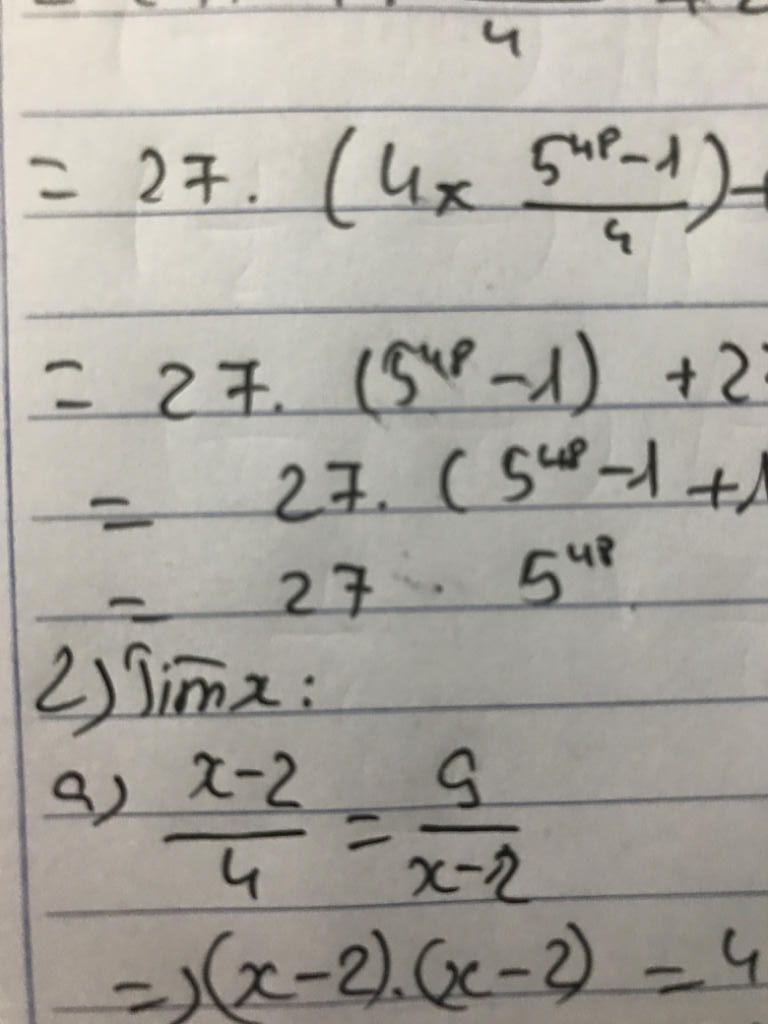 4
= 27. (4x (5^48 - 1)/4)
= 27. (5^48 - 1) + 2
= 27. (5^48 - 1 + 1
= 27 . 5^48
2) Tìm x:
a) (x-2)/4 = 9/(x-2)
=> (x-2).(x-2) = 4